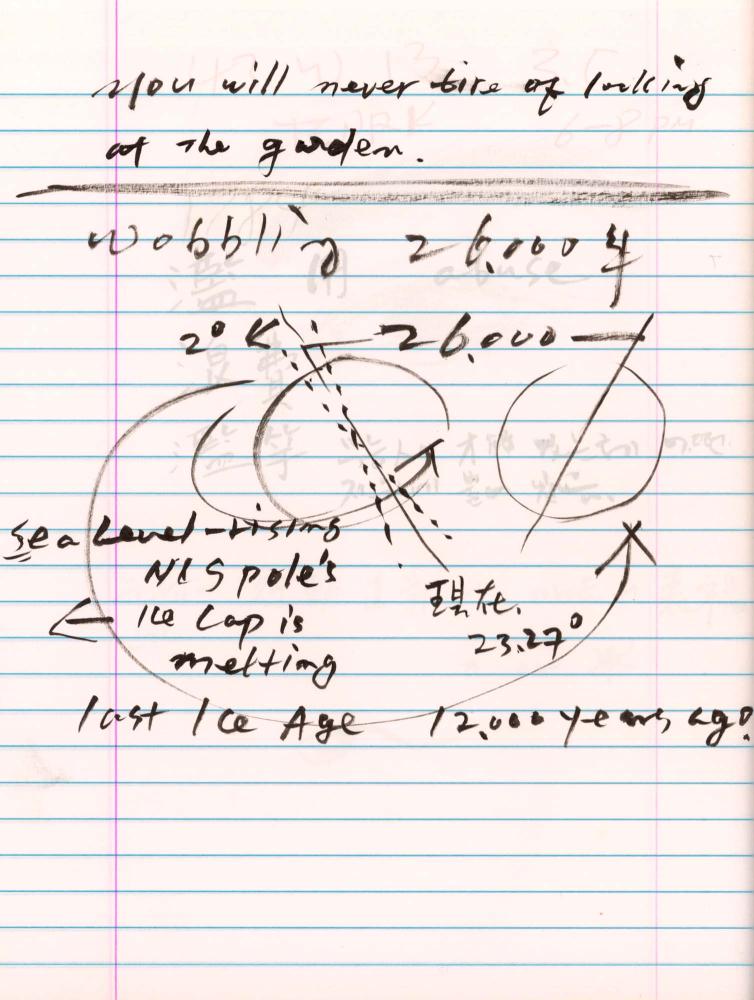 You will never tire of looking
at the garden.
Wobbling 26,000年
2° 26,000
Sea Level-rising
N&S pole's
Ice Cap is
melting
現在.
23.27°
last Ice Age 12,000 years ago.
濫 用 abuse
浪費
6-8 PM